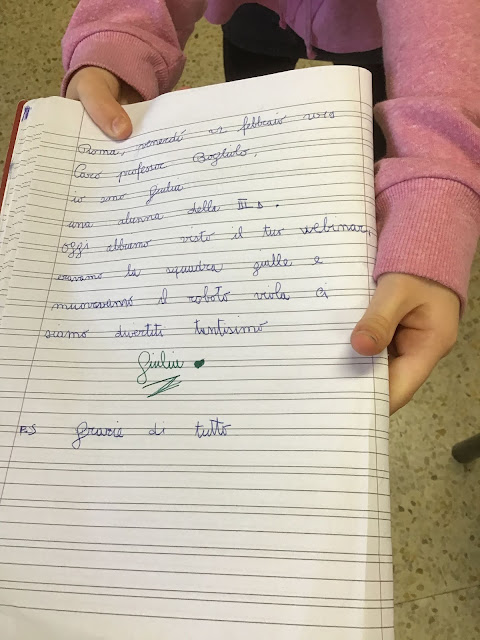 Roma, venerdì 22 febbraio 2019
Caro professor Bogliolo,
io sono Giulia
una alunna della III D.
Oggi abbiamo visto il tuo webinar,
eravamo la squadra gialla e
muovevamo il roboto viola ci
siamo divertiti tantisimo
Giulia
PS Grazie di tutto